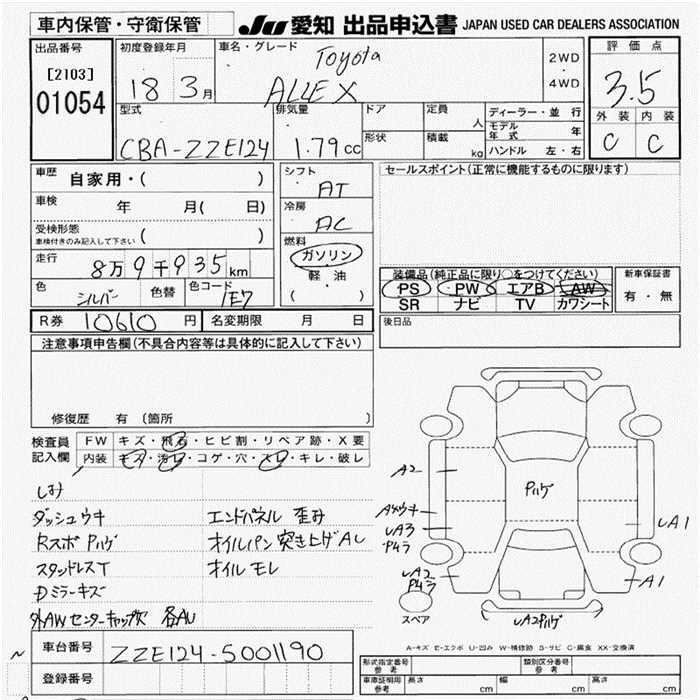 車内保管・守衛保管
JU 愛知 出品申込書 JAPAN USED CAR DEALERS ASSOCIATION
出品番号
[2103]
01054
初度登録年月
18 3月
車名・グレード
Toyota
ALLEX
2WD
・
4WD
評価点
3.5
外装 内装
C C
型式
CBA-ZZE124
排気量
1.79cc
ドア
形状
定員
人
積載
kg
ディーラー・並行
モデル年式 年
ハンドル 左・右
車歴
自家用・( )
車検
年 月( 日)
受検形態
車検付きのみ記入して下さい ( )
走行
8万9千935km
色
シルバー
色替
色コード
1E7
シフト
AT
冷房
AC
燃料
ガソリン
軽油
( )
セールスポイント(正常に機能するものに限ります)
装備品(純正品に限り○をつけてください)
PS PW エアB AW
SR ナビ TV カワシート
新車保証書
有・無
R券 10610円 名変期限 月 日
後日品
注意事項申告欄(不具合内容等は具体的に記入して下さい)
修復歴 有(箇所 )
検査員
記入欄
FW キズ・飛石・ヒビ割・リペア跡・X要
内装 キズ・汚レ・コゲ・穴・スレ・キレ・破レ
しみ
ダッシュウキ
Rスポ Pハゲ
スタッドレスT
Dミラーキズ
外AWセンターキャップ欠 各AU
エンドパネル 歪み
オイルパン突き上げAU
オイルモレ
A2
Pハゲ
Aメウキ
UA3
P4ラ
UA1
UA2
P4ラ
A1
スペア
UA2Pハゲ
車台番号
ZZE124-5001190
登録番号
A-キズ E-エクボ U-凹み W-補修跡 S-サビ C-腐食 XX-交換済
形式指定番号
参考
類別区分番号
参考
車庫証明用
参考
長さ cm 幅 cm 高さ cm